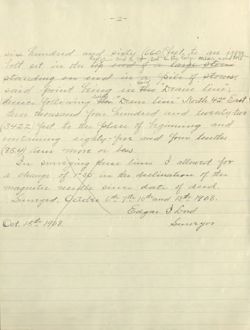 -2-
six hundred and sixty (660) feet to an iron
bolt set in the
standing on end in a pile of stones
said point being in the Drane line;
thence following Drane line North 42° East
three thousand four hundred and twenty two
(3422) feet to the place of beginning and
containing eighty-five and four tenths
(85.4) acres more or less.
In surveying these lines I allowed for
a change of in the declination of the
magnetic needle since date of deed.
Surveyed, October 6th 7th 10th and 13th 1908.
Edgar I Lord
Surveyor
Oct. 15th 1908.